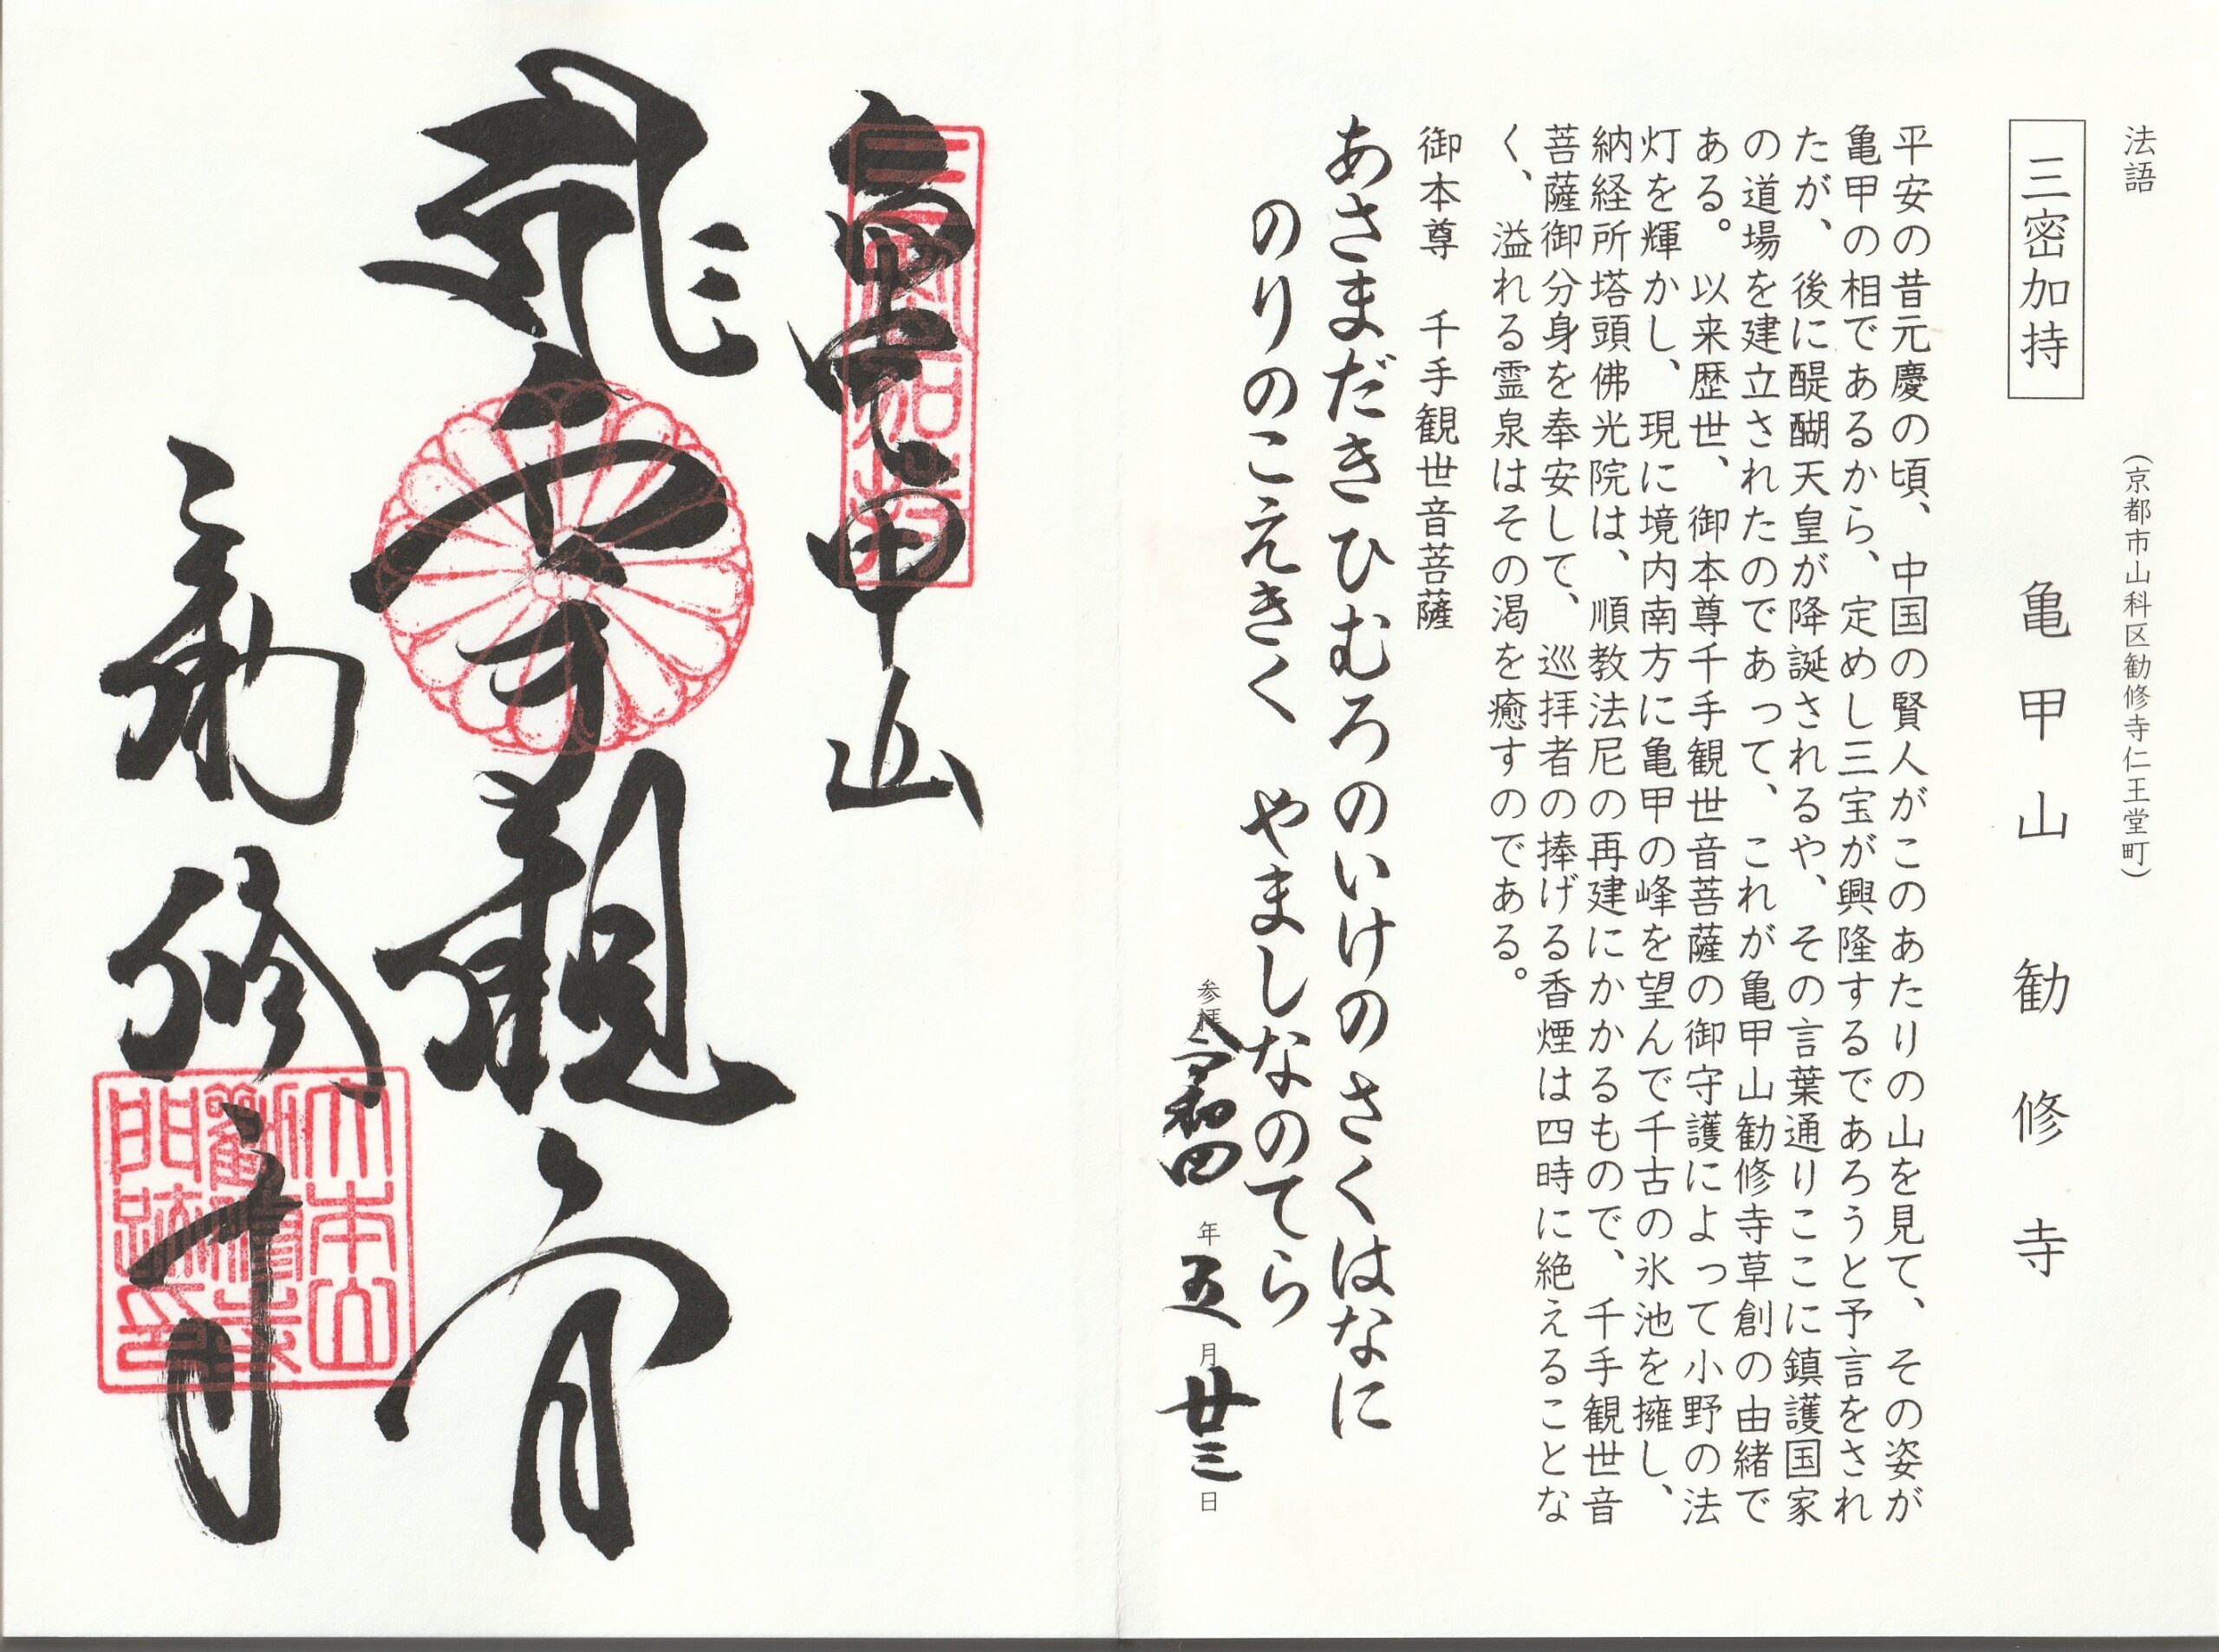 法語
（京都市山科区勧修寺仁王堂町）
三密加持
亀甲山 勧修寺
平安の昔元慶の頃、中国の賢人がこのあたりの山を見て、その姿が
亀甲の相であるから、定めし三宝が興隆するであろうと予言をされ
たが、後に醍醐天皇が降誕されるや、その言葉通りここに鎮護国家
の道場を建立されたのであって、これが亀甲山勧修寺草創の由緒で
ある。以来歴世、御本尊千手観世音菩薩の御守護によって小野の法
灯を輝かし、現に境内南方に亀甲の峰を望んで千古の氷池を擁し、
納経所塔頭佛光院は、順教法尼の再建にかかるもので、千手観世音
菩薩御分身を奉安して、巡拝者の捧げる香煙は四時に絶えることな
く、溢れる霊泉はその渇を癒すのである。
御本尊 千手観世音菩薩
あさまだきひむろのいけのさくはなに
のりのこえきく やましなのてら
参拝 令和四年五月廿三日
亀甲山
三密加持
千手観音
勧修寺
大本山
勧修寺
門跡印